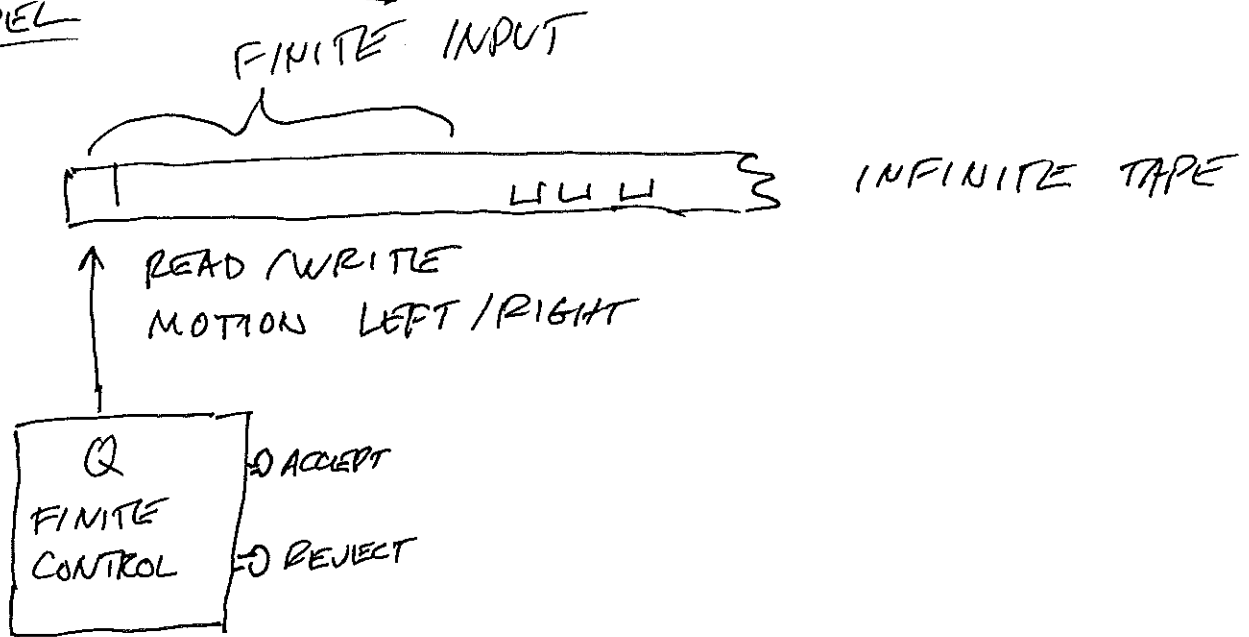 FINITE INPUT
␣ ␣ ␣
INFINITE TAPE
READ/WRITE
MOTION LEFT/RIGHT
Q
ACCEPT
FINITE
CONTROL
REJECT